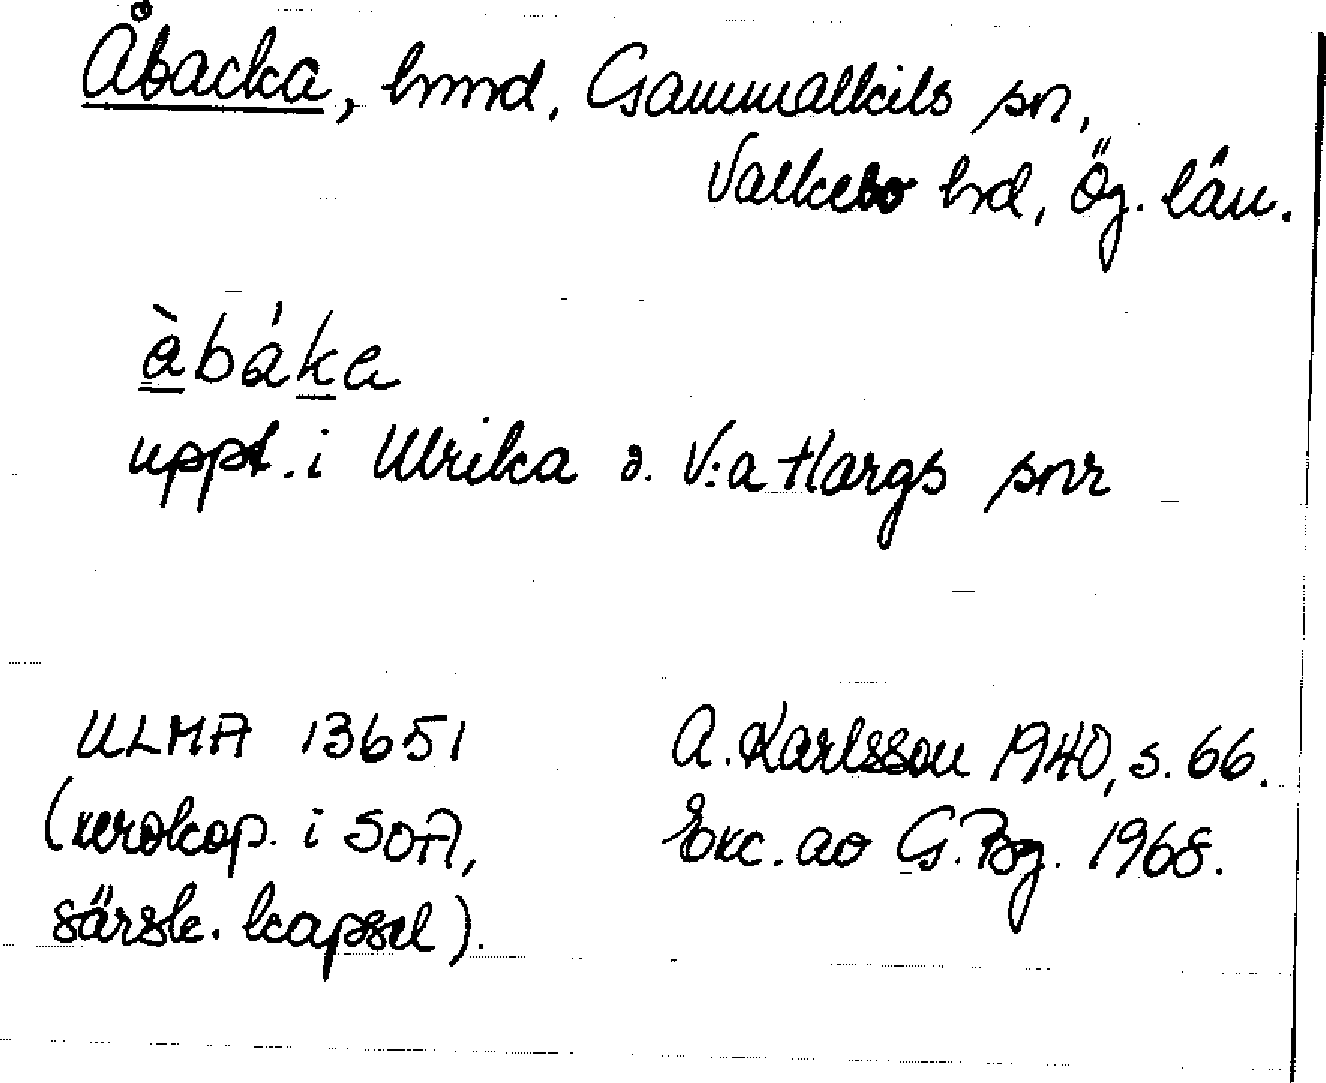 Åbacka, hmnd, Gammalkils sn,
Valkebo hd, Ög. län.
àbáka
uppt. i Ulrika o. V:a Hargs snr
ULMA 13651
A. Karlsson 1940, s. 66.
(xerokop. i SOA,
Exc. av G. Bg. 1968.
särsk. kapsel).